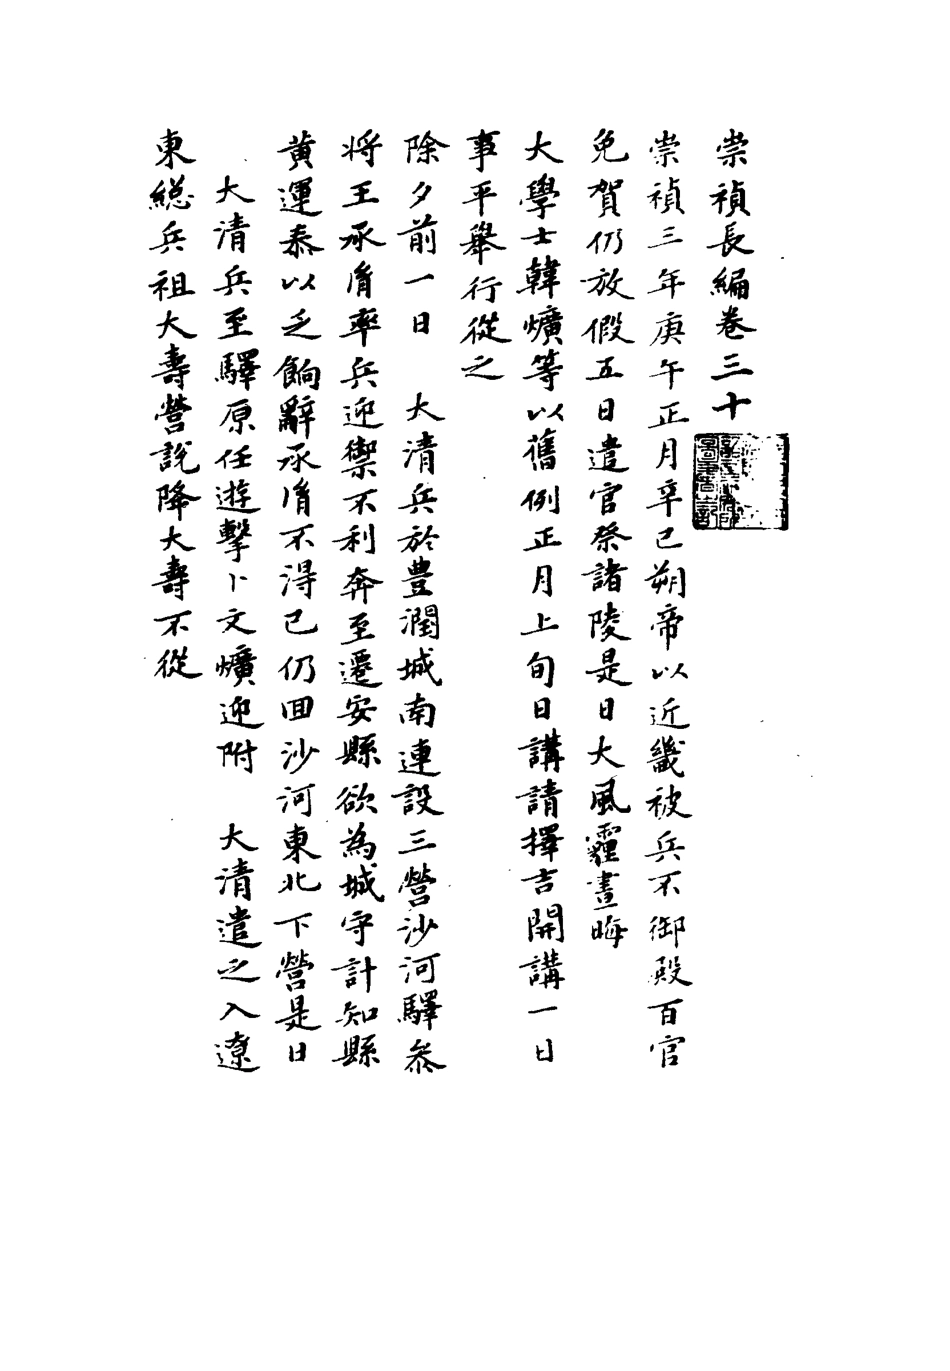 崇禎長編卷三十
崇禎三年庚午正月辛巳朔帝以近畿被兵不御殿百官
免賀仍放假五日遣官祭諸陵是日大風霾晝晦
大學士韓爌等以舊例正月上旬日講請擇吉開講一日
事平舉行從之
除夕前一日 大清兵於豊潤城南連設三營沙河驛叅
将王承胤率兵迎禦不利奔至遷安縣欲為城守計知縣
黄運泰以乏餉辭承胤不得已仍回沙河東北下營是日
大清兵至驛原任遊擊卜文爌迎附 大清遣之入遼
東総兵祖大壽營説降大壽不從